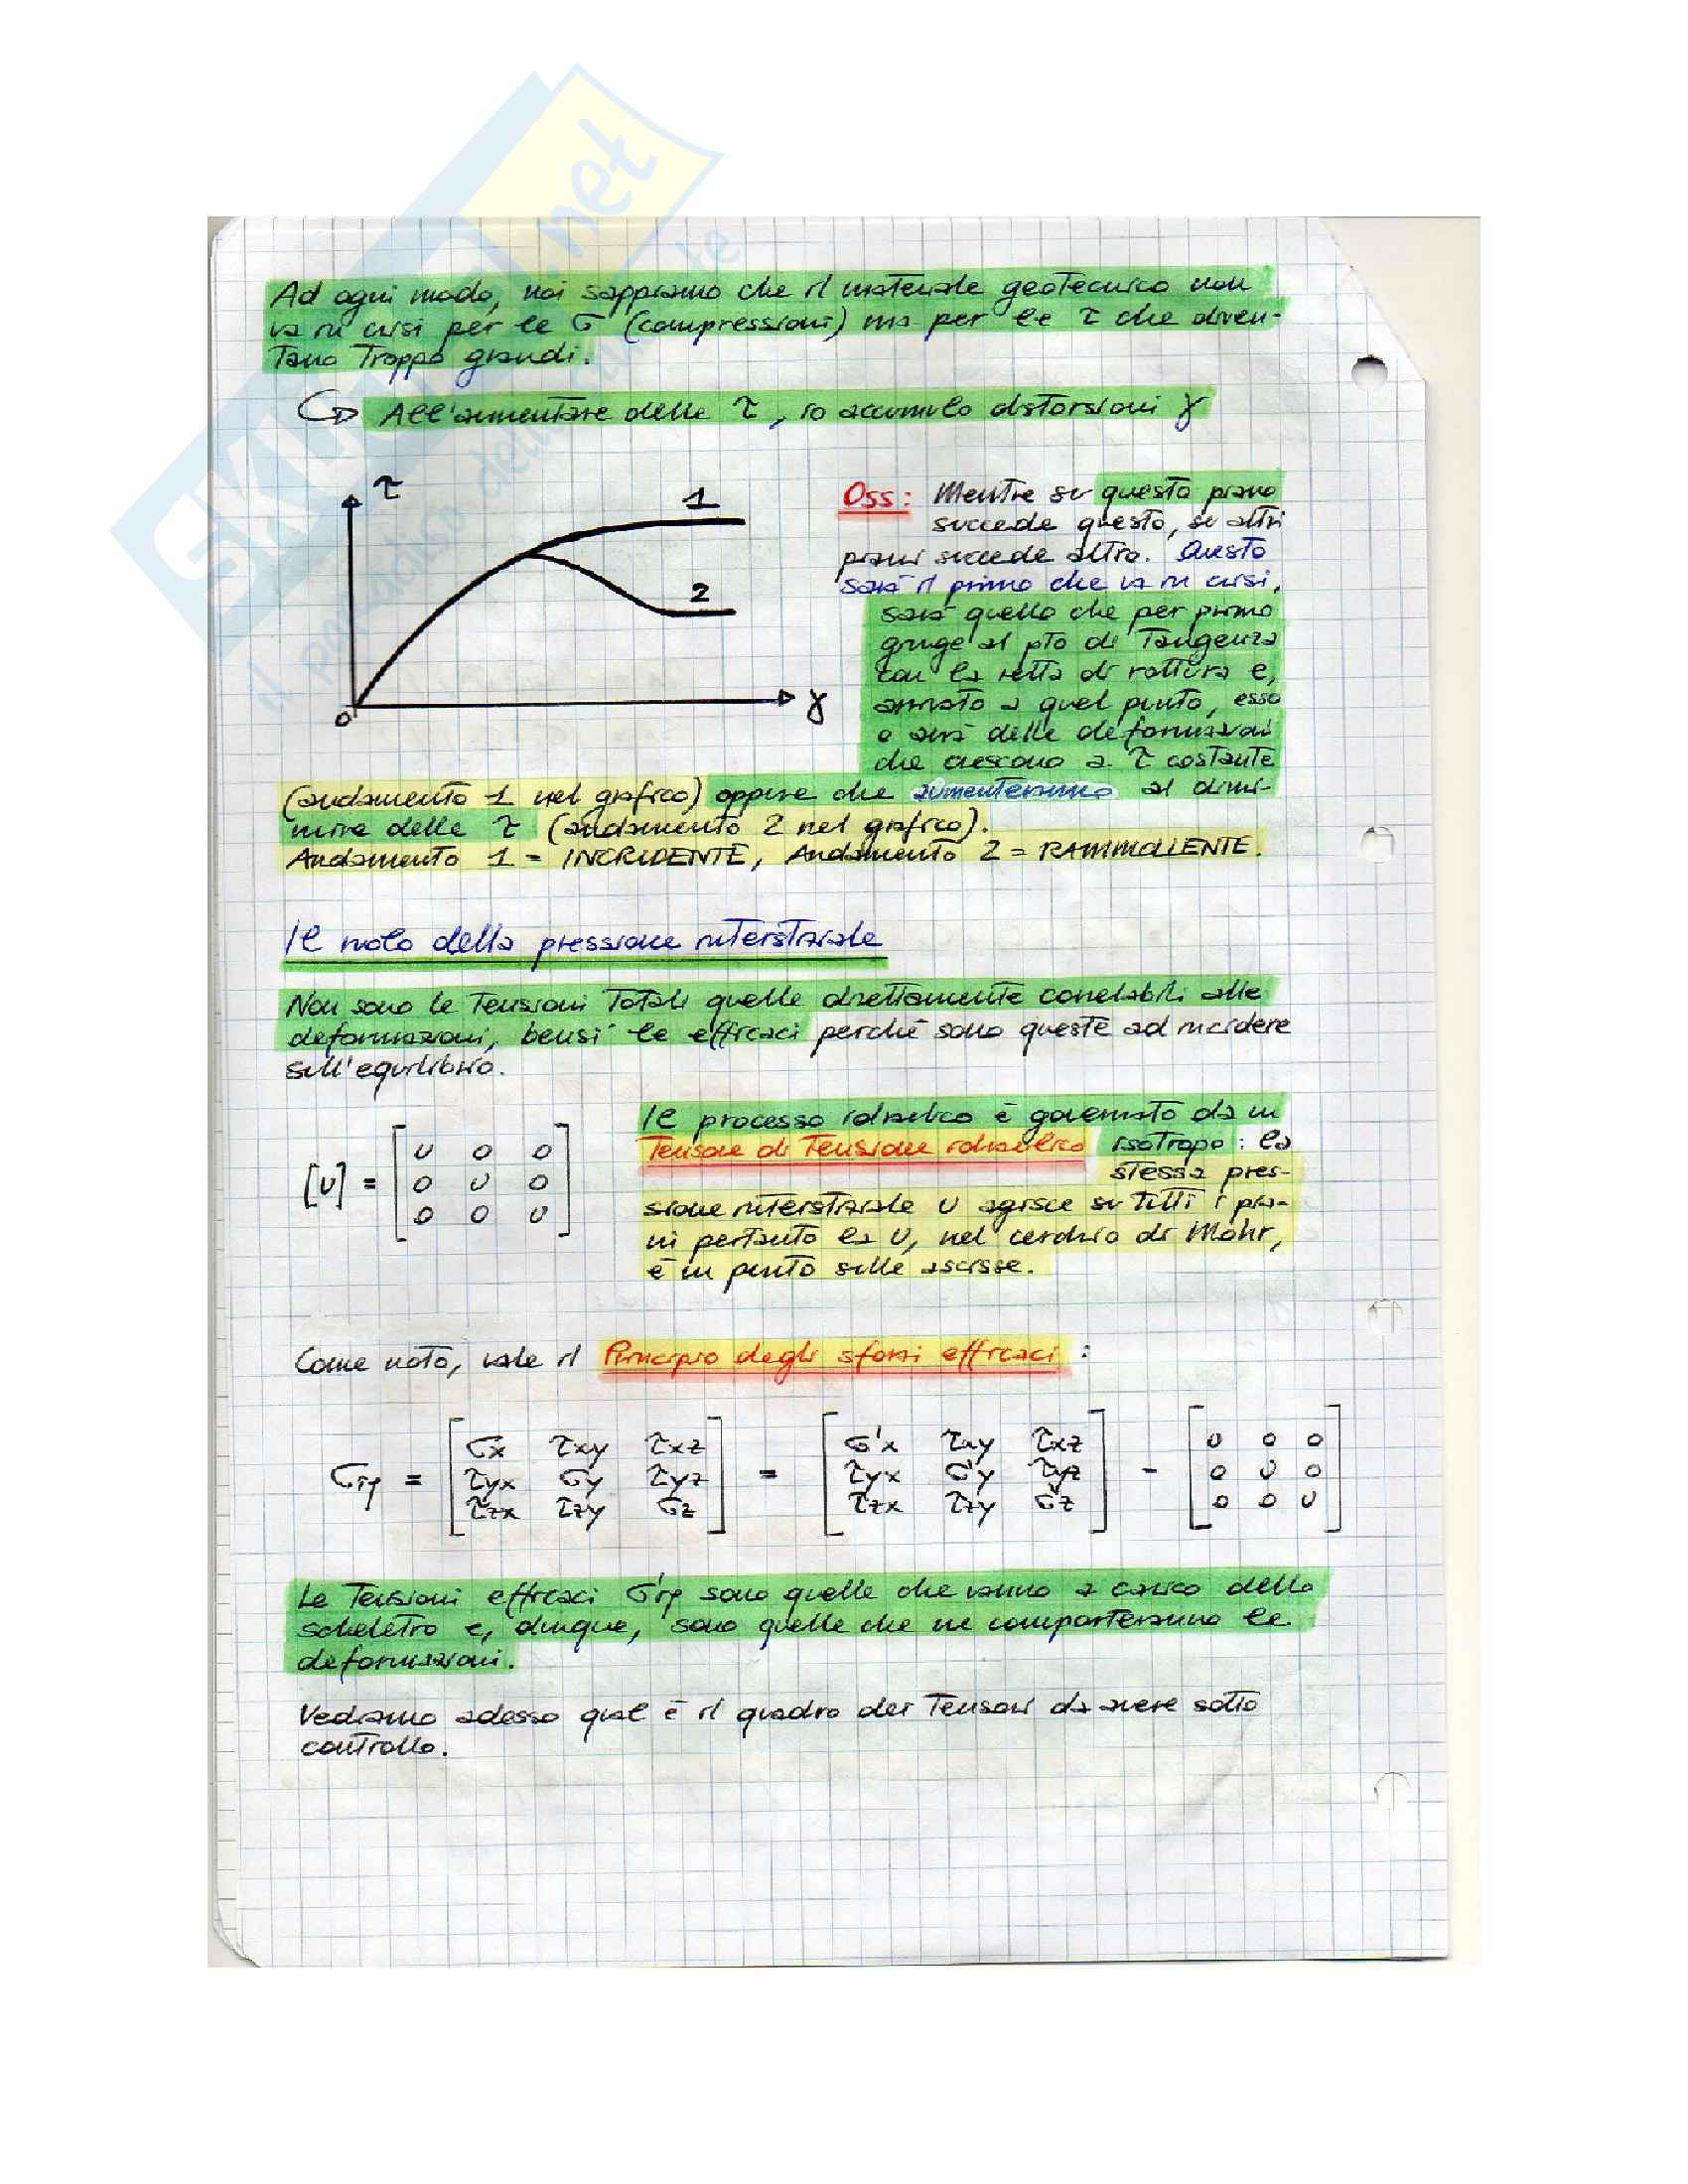 Ad ogni modo, noi sappiamo che il materiale geotecnico non
va in crisi per le σ (compressioni) ma per le τ che diven-
tano troppo grandi.
All'aumentare delle τ, io accumulo distorsioni γ
τ
1
2
0
γ
Oss: Mentre su questo piano
succede questo, su altri
piani succede altro. Questo
sarà il primo che va in crisi,
sarà quello che per primo
giunge al pto di tangenza
con la retta di rottura e,
arrivato a quel punto, esso
o avrà delle deformazioni
che crescono a τ costante
(andamento 1 nel grafico) oppure che aumenteranno al dimi-
nuire delle τ (andamento 2 nel grafico).
Andamento 1 = INCRUDENTE, Andamento 2 = RAMMOLLENTE.
Il ruolo della pressione interstiziale
Non sono le tensioni totali quelle direttamente correlabili alle
deformazioni, bensì le efficaci perchè sono queste ad incidere
sull'equilibrio.
[u] = [u 0 0
0 u 0
0 0 u]
Il processo idraulico è governato da un
tensore di tensione idraulico isotropo: la
stessa pres-
sione interstiziale u agisce su tutti i pia-
ni pertanto la u, nel cerchio di Mohr,
è un punto sulle ascisse.
Come noto, vale il Principio degli sforzi efficaci :
σij = [σx τxy τxz] = [σ'x τxy τxz] - [u 0 0]
[τyx σy τyz] [τyx σ'y τyz] [0 u 0]
[τzx τzy σz] [τzx τzy σ'z] [0 0 u]
Le tensioni efficaci σ'ij sono quelle che vanno a carico dello
scheletro e, dunque, sono quelle che ne comporteranno le
deformazioni.
Vediamo adesso qual è il quadro dei tensori da avere sotto
controllo.